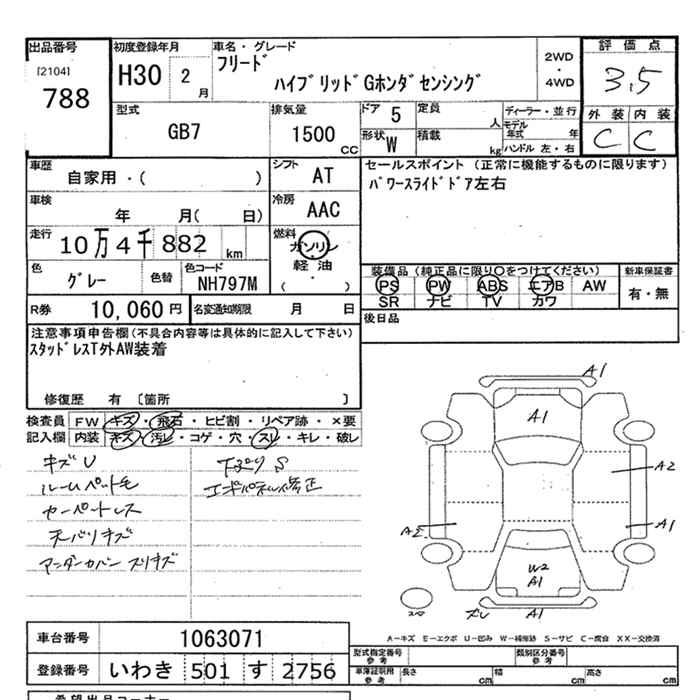 出品番号
[2104]
788
初度登録年月
H30 2 月
車名・グレード
フリード
ハイブリッドGホンダセンシング
2WD
・
4WD
評価点
3.5
外装 内装
C C
型式
GB7
排気量
1500 CC
ドア 5
形状 W
定員 人
積載 kg
ディーラー・並行
モデル年式 年
ハンドル 左・右
車歴
自家用・( )
シフト
AT
セールスポイント (正常に機能するものに限ります)
パワースライドドア左右
車検
年 月( 日)
冷房
AAC
走行
10万4千882 km
燃料
ガソリン
・
軽油
( )
色
グレー
色替
色コード
NH797M
装備品(純正品に限り○をつけてください)
PS PW ABS エアB AW
SR ナビ TV カワ
新車保証書
有・無
R券 10,060円
名変通知期限 月 日
後日品
注意事項申告欄(不具合内容等は具体的に記入して下さい)
スタッドレスT外AW装着
修復歴 有 [箇所 ]
検査員 FW キズ・飛石・ヒビ割・リペア跡・×要
記入欄 内装 キズ・汚レ・コゲ・穴・スレ・キレ・破レ
キズU
ルームペット毛
カーペットスレ
天バリキズ
アンダーカバースリキズ
下廻りS
エドパネル修正
A1
A1
A2
A2
A1
W2
A1
ズレ
A1
A−キズ E−エクボ U−凹み W−補修跡 S−サビ C−腐食 XX−交換済
車台番号 1063071
登録番号 いわき 501 す 2756
型式指定番号
参考
類別区分番号
参考
車庫証明用
参考
長さ cm
幅 cm
高さ cm
希望出品コーナー